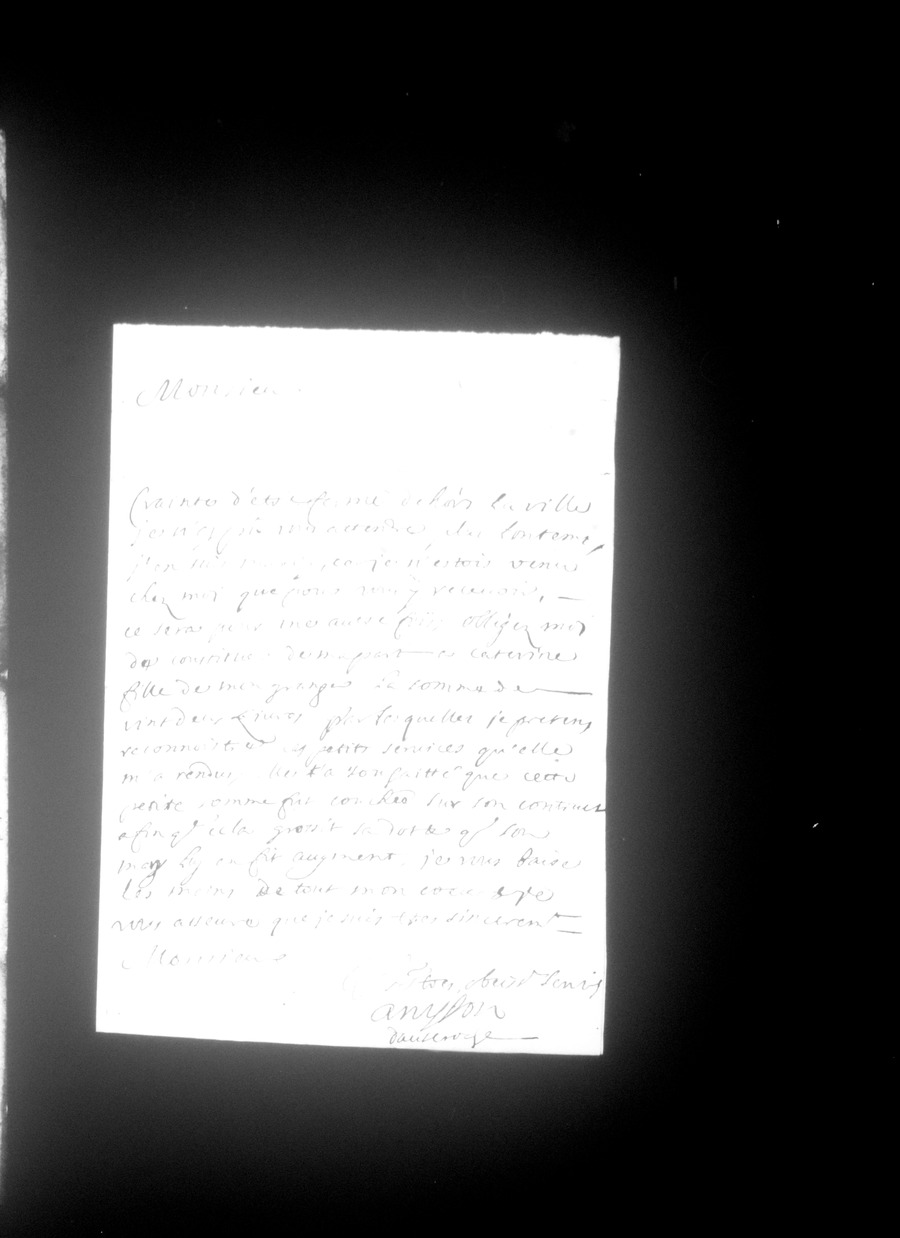 Monsieur
Crainte d'etre fermé dehors la ville
je n'ay pû vous attendre plus lontems
j'en suis car je n'estois venu
chez moi que pour vous y recevoir, —
ce sera pour une autre fois obligez moi
de constituer de ma part a caterine
fille de mon granger la somme de —
vint deux Livres par lesquelles je pretens
reconnoistre les petits services qu'elle
m'a rendus, elle a souhaitté que cette
petite somme fut couchée sur son contract
afin q̃ cela grossit sa dotte q̃ son
mary luy en fit augment, je vous baise
les mains de tout mon coeur & je
vous asseure que je suis tres sincerem.t
Monsieur
obeiss.t servit.r
anysson
dauterroge